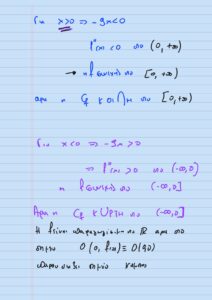 Για x>0 ⇒ -9x<0
f''(x) <0 στο (0,+∞)
→ η f συνεχής στο [0,+∞)
άρα η Cf κοίλη στο [0,+∞)
Για x<0 ⇒ -9x>0
⇒ f''(x) >0 στο (-∞,0)
η f συνεχής στο (-∞,0]
Άρα η Cf κυρτή στο (-∞,0]
Η f είναι παραγωγίσιμη στο ℝ άρα στο
σημείο O(0, f(0)) ≡ O(0,0)
παρουσιάζει σημείο καμπής